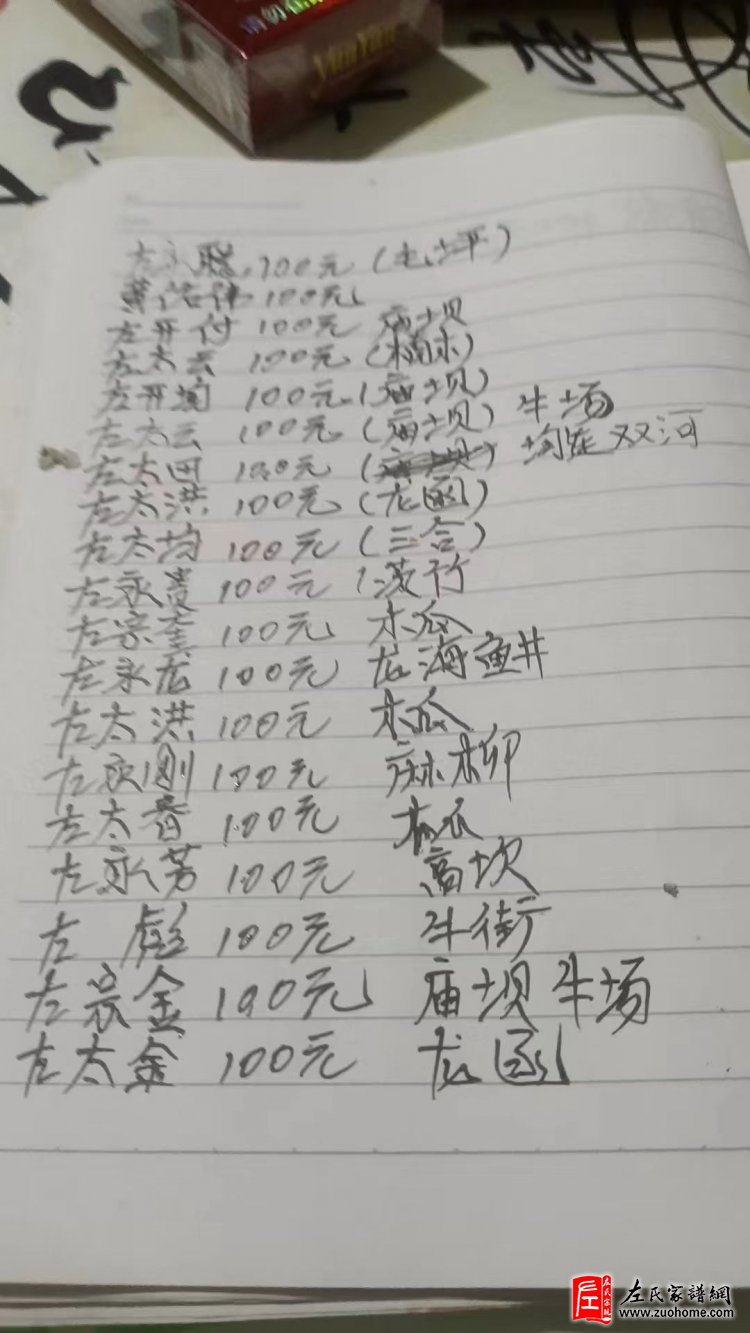 YunYan
左永聪 100元 (毛坪)
黄佑伟 100元
左开付 100元 庙坝
左太云 100元 (楠木)
左开均 100元 (庙坝)
左太云 100元 (庙坝) 牛场
左太田 100元 双河
左太洪 100元 (龙函)
左太均 100元 (三合)
左永贵 100元
左宗奎 100元 木瓜
左永龙 100元 龙海鱼井
左太洪 100元 木瓜
左永刚 100元 麻柳
左太春 100元 木瓜
左永芳 100元 高坎
左彪 100元 牛街
左宗金 100元 庙坝牛场
左太金 100元 龙函
左氏家譜網
www.zuohome.com